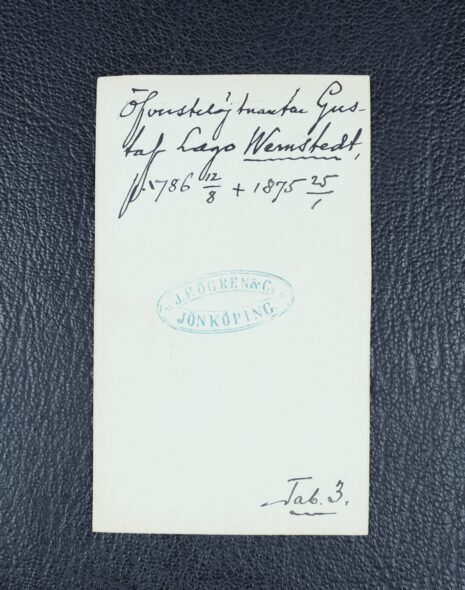 Öfverstelöjtnanten Gus-
taf Lago Wernstedt,
f. 1786 12/8 + 1875 25/1
J. F. ÖGREN & C.
JÖNKÖPING
Tab. 3.